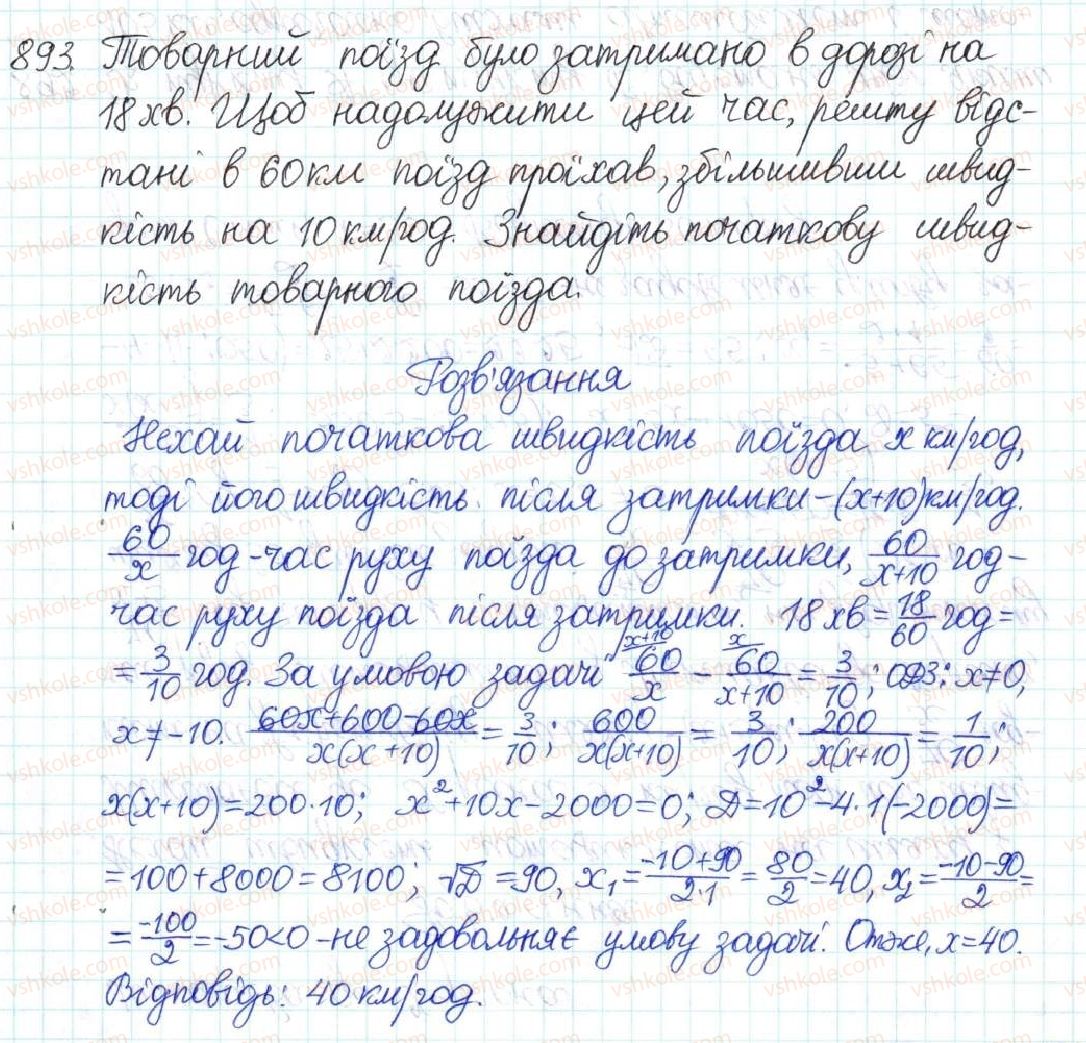 893. Товарний поїзд було затримано в дорозі на
18 хв. Щоб надолужити цей час, решту відс-
тані в 60 км поїзд проїхав, збільшивши швид-
кість на 10 км/год. Знайдіть початкову швид-
кість товарного поїзда.
Розв'язання
Нехай початкова швидкість поїзда x км/год,
тоді його швидкість після затримки – (x+10) км/год.
60/x год - час руху поїзда до затримки, 60/(x+10) год -
час руху поїзда після затримки. 18 хв = 18/60 год =
= 3/10 год. За умовою задачі (x+10 60/x - (x 60/(x+10) = 3/10; ОДЗ: x≠0,
x≠-10. (60x+600-60x)/(x(x+10)) = 3/10; 600/(x(x+10)) = 3/10; 200/(x(x+10)) = 1/10;
x(x+10)=200·10; x²+10x-2000=0; D=10²-4·1(-2000)=
=100+8000=8100; √D=90, x₁=(-10+90)/(2·1)=80/2=40, x₂=(-10-90)/2=
=-100/2=-50<0 - не задовольняє умову задачі. Отже, x=40.
Відповідь: 40 км/год.
vshkole.com